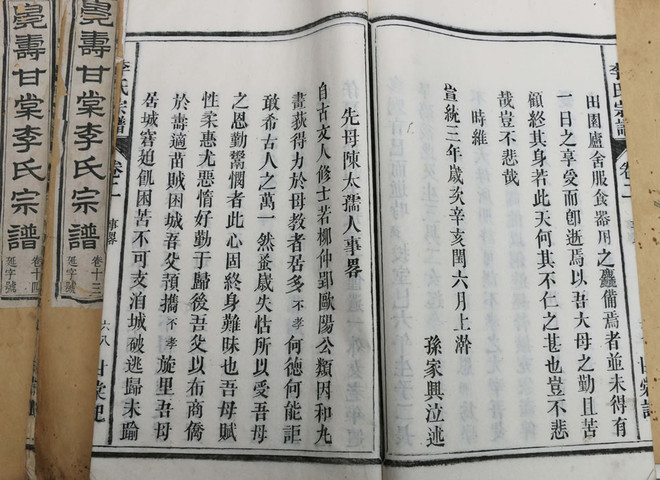 田園廬舍服食器用之麤備焉者並未得有
一日之享受而卽逝焉以吾大母之勤且苦
顧終其身若此天何其不仁之甚也豈不悲
哉豈不悲哉
時維
宣統三年歲次辛亥閏六月上澣
孫家興泣述
先母陳太孺人事畧
自古文人修士若柳仲郢歐陽公類因和丸
畫荻得力於母教者居多不孝何德何能詎
敢希古人之萬一然蚤歲失怙所以受吾母
之恩勤鬻憫者此心固終身難昧也吾母賦
性柔惠尤惡惰好勤于歸後吾父以布商僑
於壽適苗賊困城吾父顇攜不孝旋里吾母
居城窘迫飢困苦不可支泊城破逃歸未踰
李氏宗譜
卷二
事畧
六八
甘棠記
李氏宗譜
卷二
壽甘棠李氏宗譜
卷十三
延字號
壽甘棠李氏宗譜
卷十四
延字號